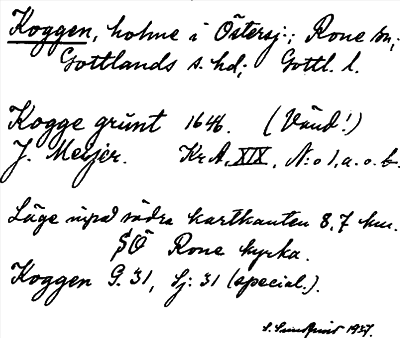 Koggen, holme i Östersj.; Rone sn;
Gottlands s. hd; Gottl. l.
Kogge grunt 1646. (Vänd!)
J. Meijer. Kr A, XIX, N:o 1, a.o.b.
Läge vid södra kartkanten 8,7 km.
SÖ Rone kyrka.
Koggen G. 31, Sj: 31 (special.).
1937.